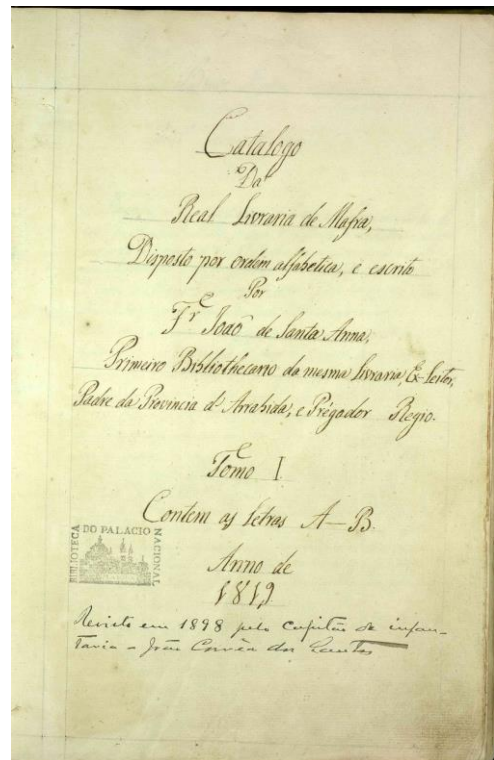 Catalogo
Da
Real Livraria de Mafra,
Disposto por ordem alfabetica, e escrito
Por
Fr. João de Santa Anna,
Primeiro Bibliothecario da mesma Livraria, Ex-Leitor,
Padre da Provincia d'Arrabida, e Prégador Regio.
Tomo I.
Contem as letras A—B.
BIBLIOTECA DO PALACIO NACIONAL
Anno de
1819
Revisto em 1898 pelo capitão de infan-
taria - João Corrêa dos Santos